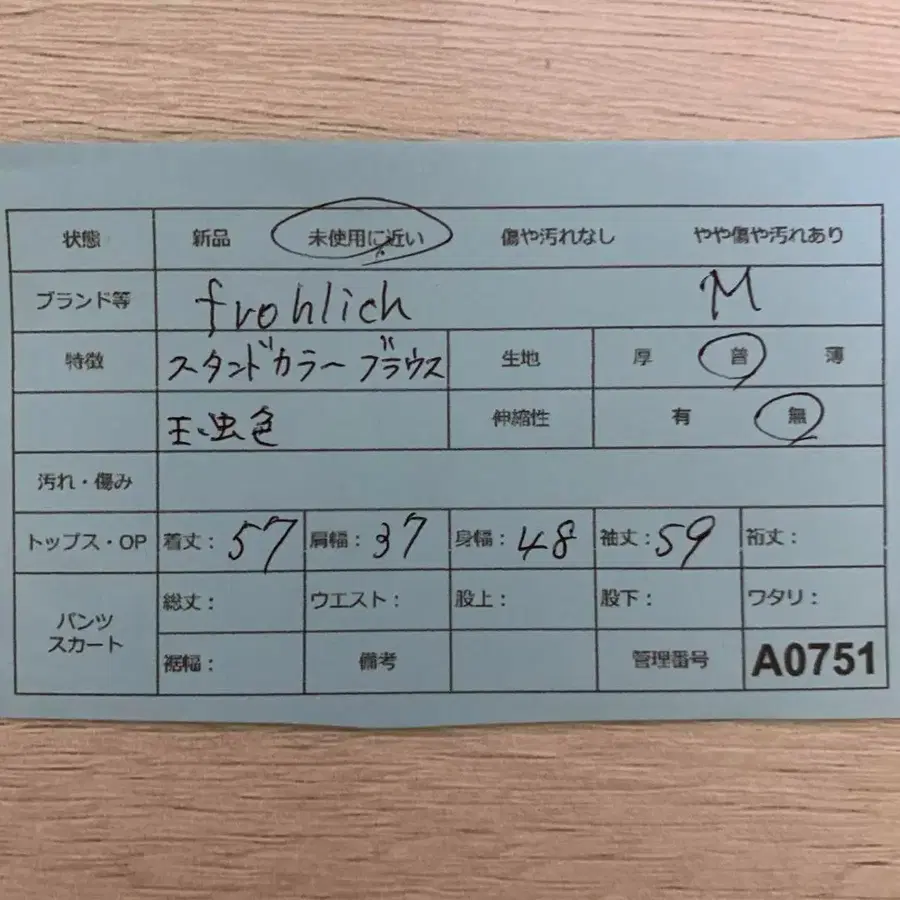 状態 新品 未使用に近い 傷や汚れなし やや傷や汚れあり
ブランド等 frohlich M
特徴 スタンドカラーブラウス 生地 厚 普 薄
玉虫色 伸縮性 有 無
汚れ・傷み
トップス・OP 着丈： 57 肩幅： 37 身幅： 48 袖丈： 59 裄丈：
パンツ
スカート
総丈： ウエスト： 股上： 股下： ワタリ：
裾幅： 備考 管理番号 A0751